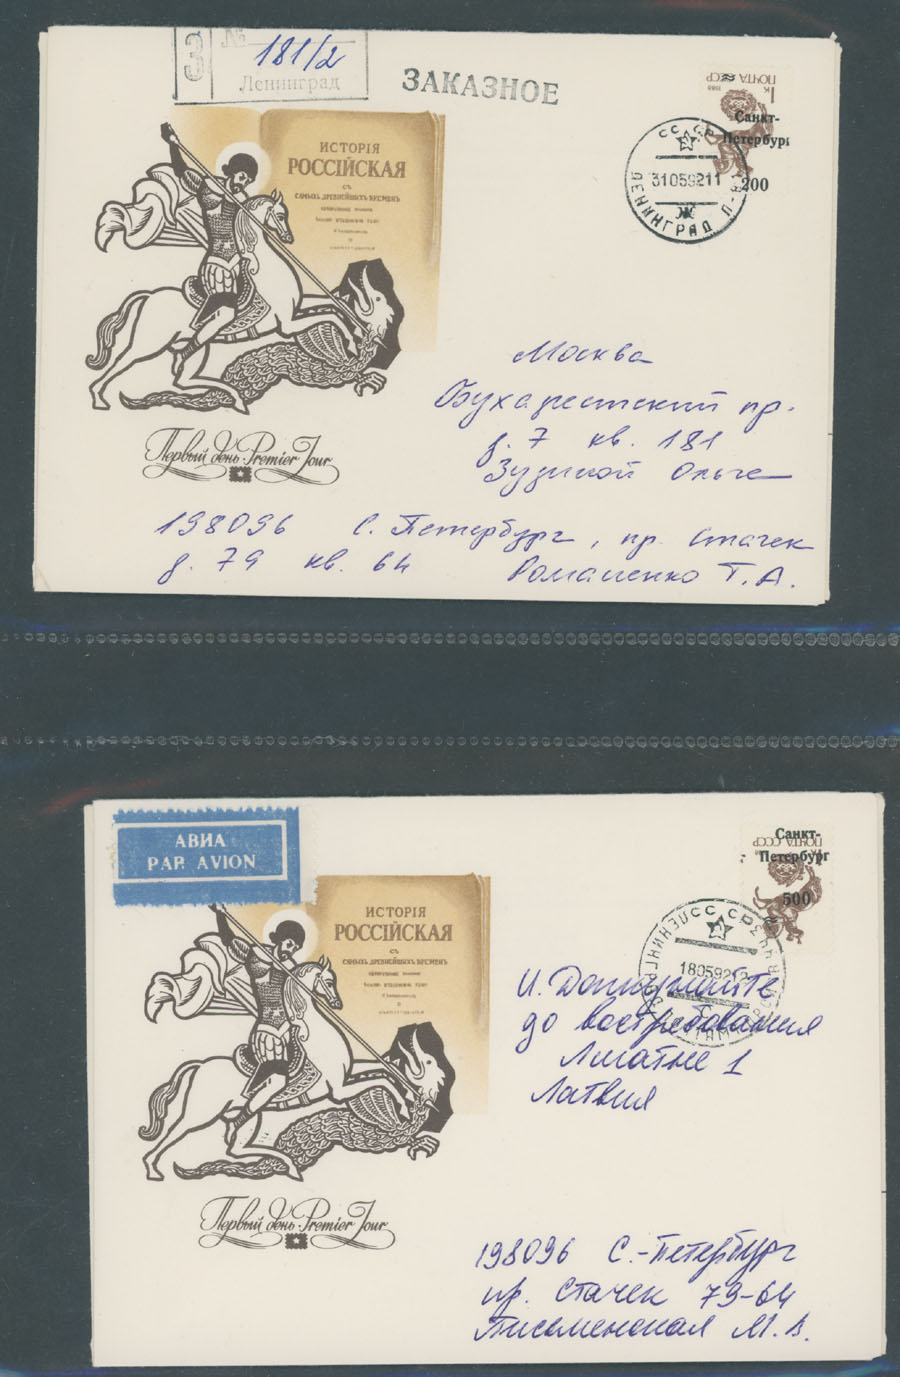 З
№ 181/2
Ленинград
ЗАКАЗНОЕ
ПОЧТА СССР
1 к
1988
Санкт-
Петербург
200
СССР
31059211
ЛЕНИНГРАД П-
Ж
ИСТОРІЯ
РОССІЙСКАЯ
СЪ
САМЫХЪ ДРЕВНѢЙШИХЪ ВРЕМЕНЪ
Москва
Бухарестский пр.
д. 7 кв. 181
Зузиной Ольге
Первый день · Premier Jour
198096 С. Петербург, пр. Стачек
д. 79 кв. 64 Романенко Т. А.
АВИА
PAR AVION
ПОЧТА СССР
Санкт-
Петербург
500
ЛЕНИНГРАД
СССР
180592
С
ИСТОРІЯ
РОССІЙСКАЯ
СЪ
САМЫХЪ ДРЕВНѢЙШИХЪ ВРЕМЕНЪ
до востребования
Лигатне 1
Латвия
Первый день · Premier Jour
198096 С.-Петербург
пр. Стачек 79-64
Письменская М. В.